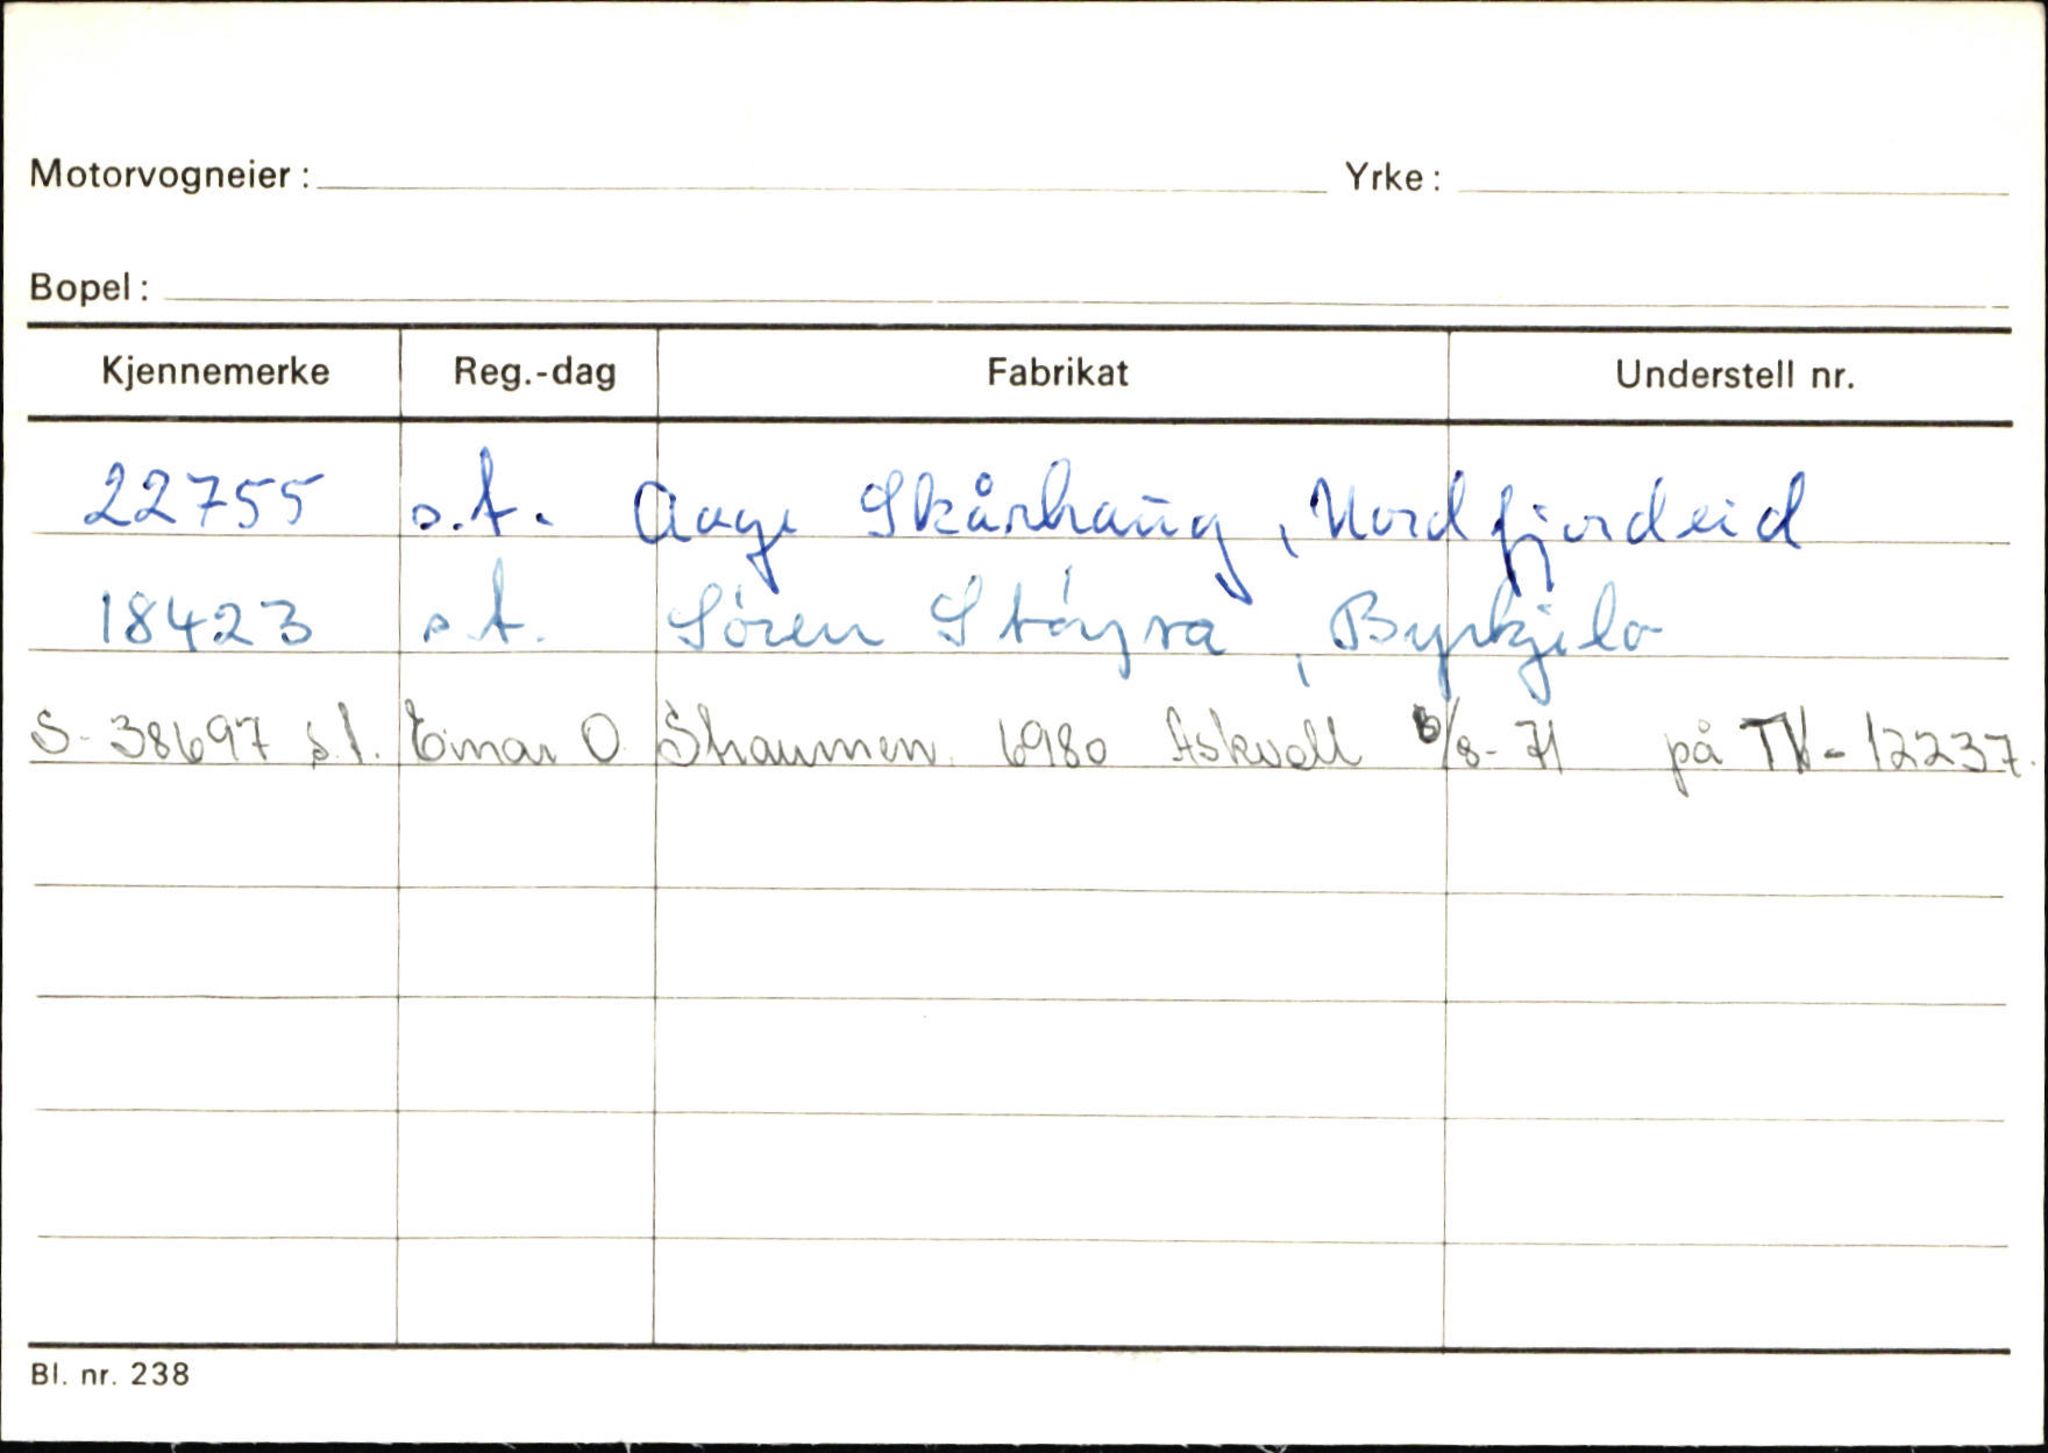 Motorvogneier: Yrke:
Bopel:
Kjennemerke Reg.-dag Fabrikat Understell nr.
22755 s.t. Aage Skårhaug, Nordfjordeid
18423 s.t. Sören Støyva, Byrkjelo
S-38697 s.t. Einar O 6980 Askvoll 6/8-71 på TV-12237.
Bl. nr. 238